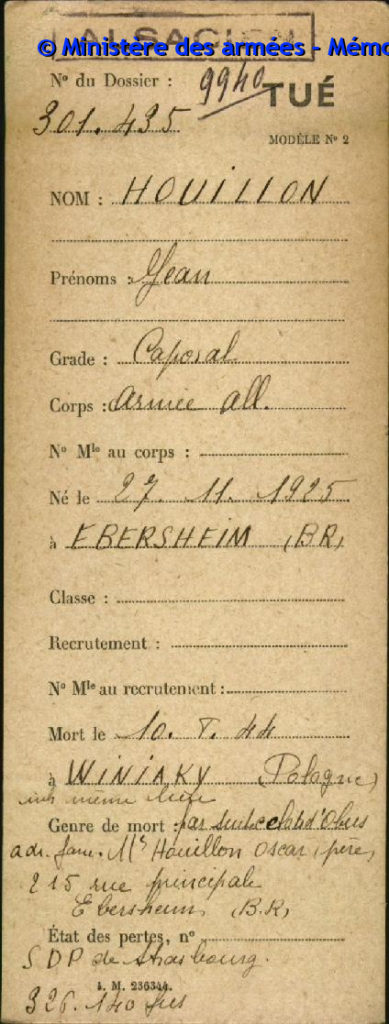 ALSACIEN
© Ministère des armées - Mémo
N° du Dossier :
9940
TUÉ
301.435
MODÈLE N° 2
NOM : HOUILLON
Prénoms : Jean
Grade : Caporal
Corps : Armée all.
N° Mle au corps :
Né le 27. 11. 1925
à EBERSHEIM (BR)
Classe :
Recrutement :
N° Mle au recrutement :
Mort le 10. 8. 44
à WINIAKY (Pologne)
inh même lieu
Genre de mort par suite éclats d'Obus
adr. fam. Mr Houillon Oscar, père,
215 rue principale
Ebersheim (B.R)
État des pertes, n°
SDP de Strasbourg.
I. M. 236344.
326.140 fus